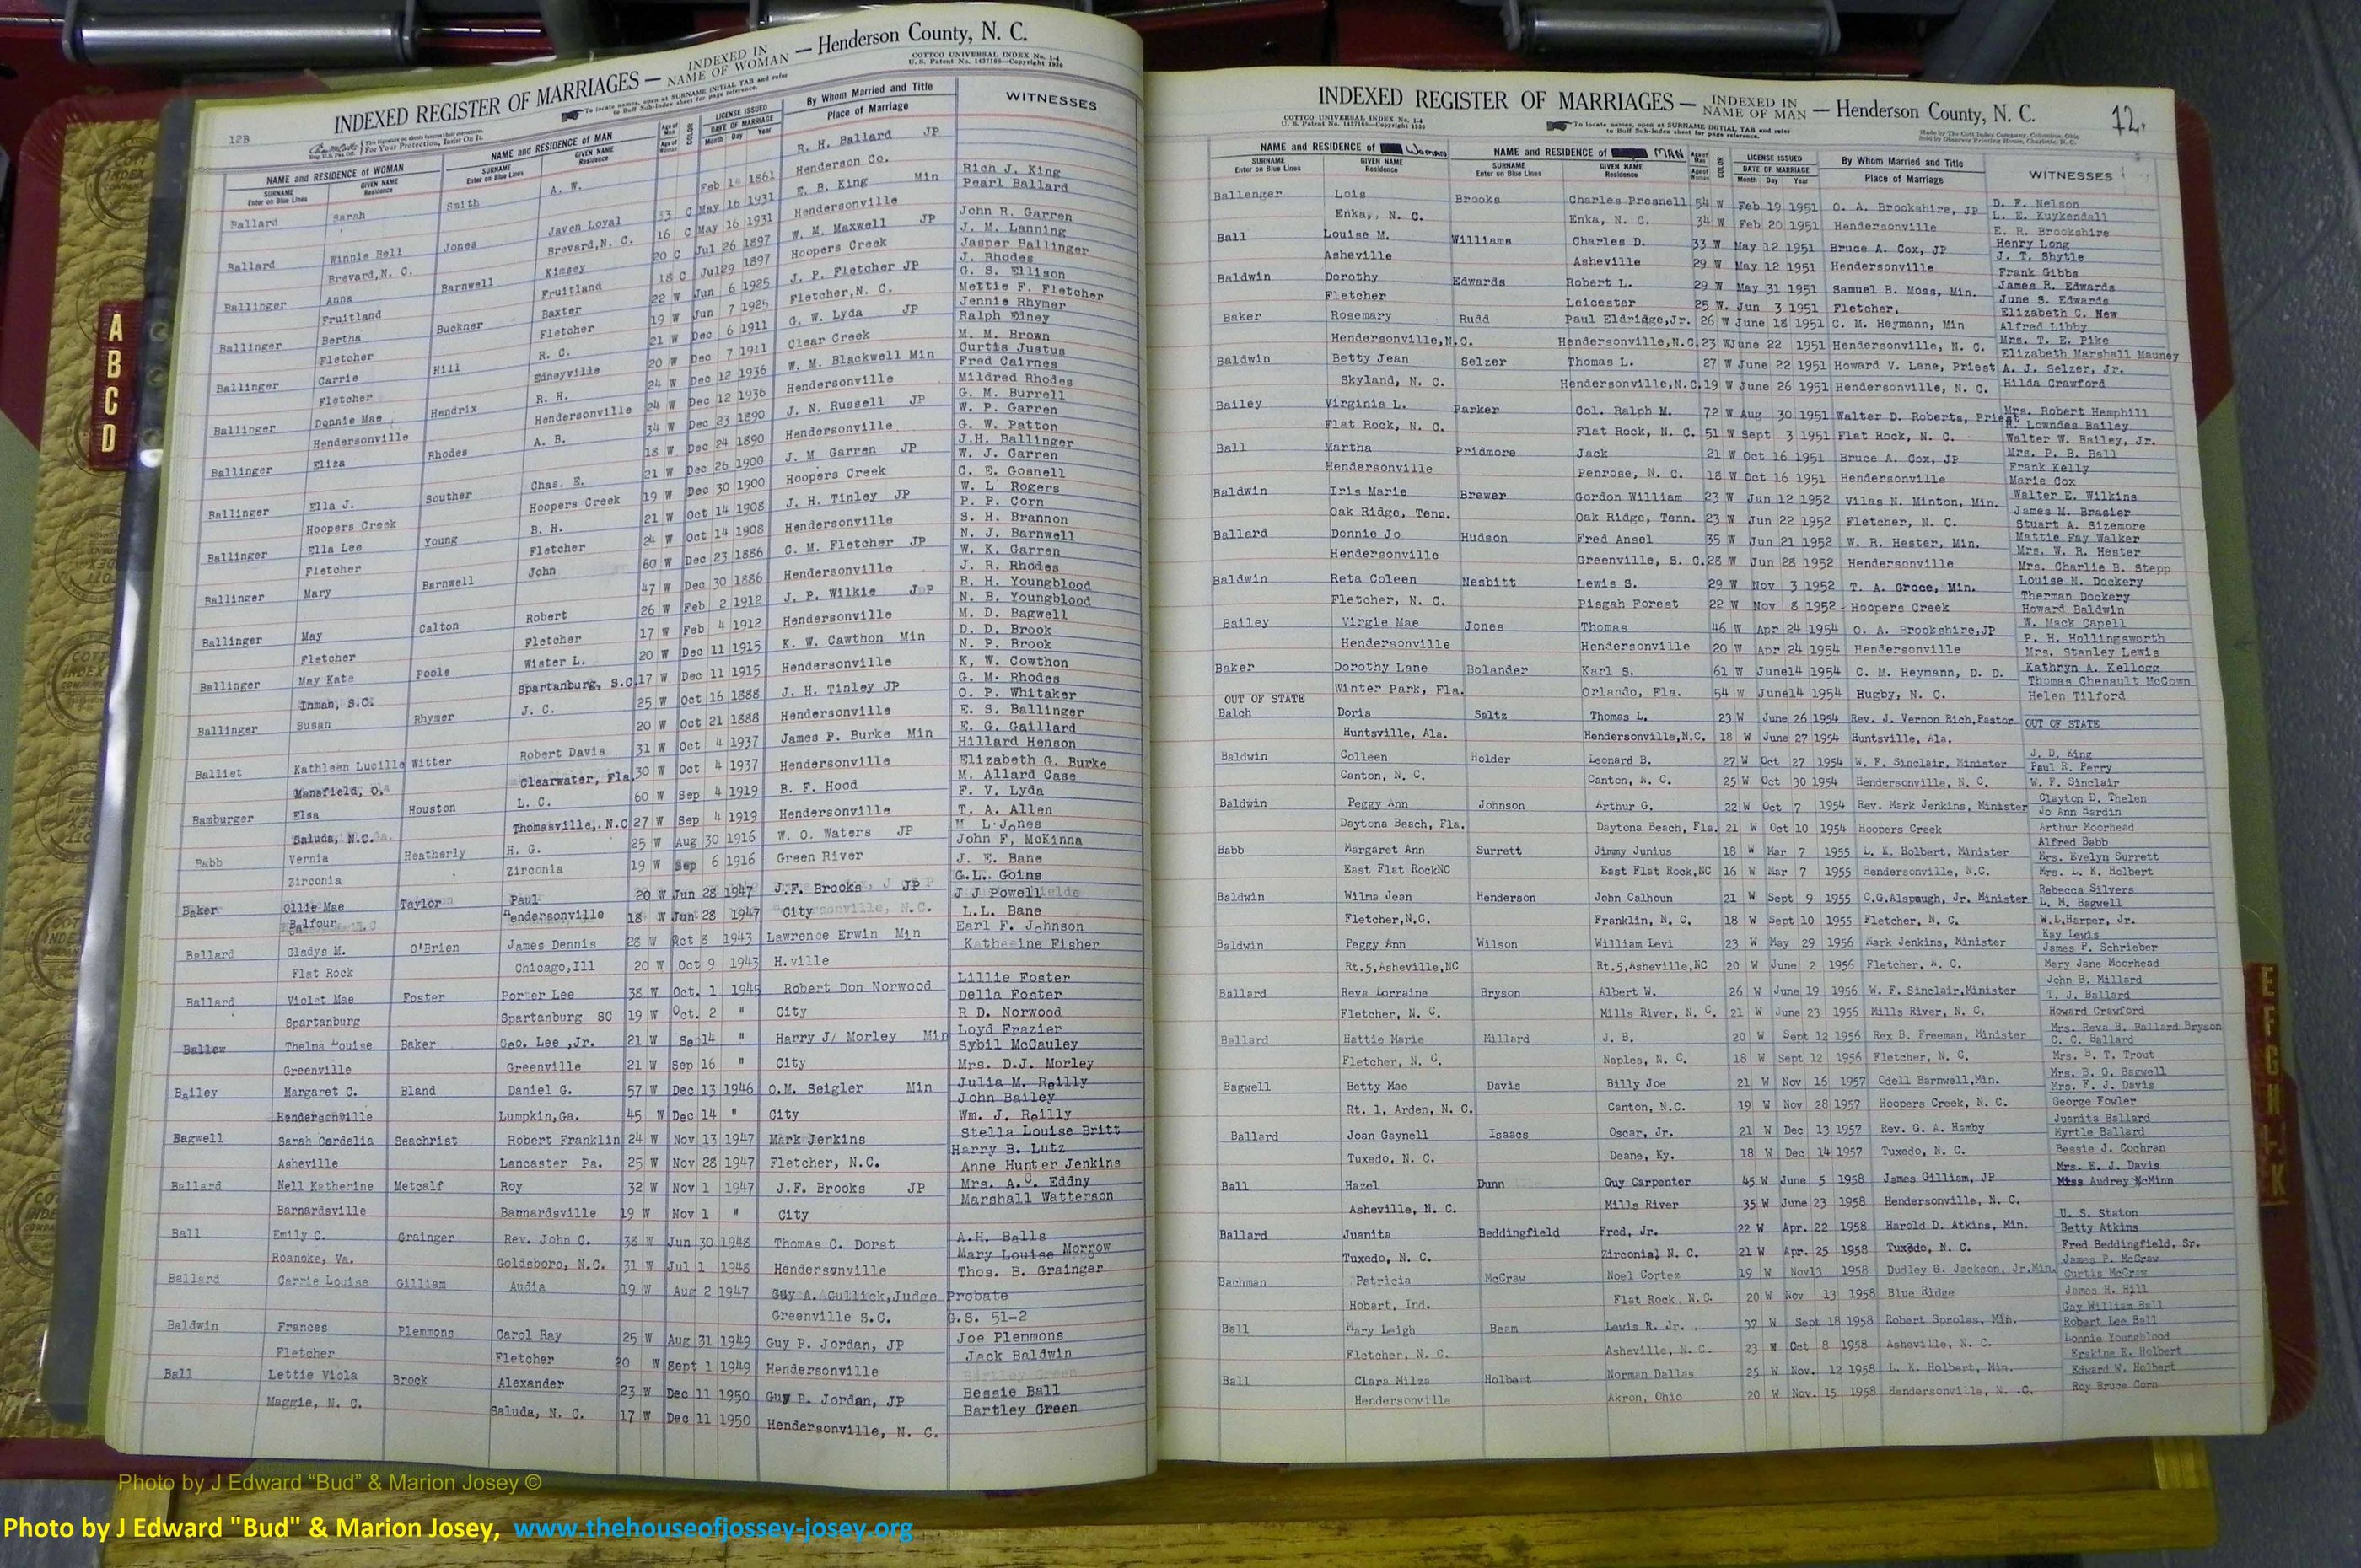 12B
INDEXED REGISTER OF MARRIAGES — INDEXED IN NAME OF WOMAN — Henderson County, N. C.
COTTCO UNIVERSAL INDEX No. 1-4
U. S. Patent No. 1437165—Copyright 1930
To locate names, open at SURNAME INITIAL TAB and refer
to Buff Sub-Index sheet for page reference.
For Your Protection, Insist On It.
NAME and RESIDENCE OF WOMAN NAME and RESIDENCE OF MAN Age of Man Age of Woman COLOR LICENSE ISSUED DATE OF MARRIAGE By Whom Married and Title Place of Marriage WITNESSES
SURNAME Enter on Blue Lines GIVEN NAME Residence SURNAME Enter on Blue Lines GIVEN NAME Residence Month Day Year
Ballard Sarah Smith A. W. Feb 18 1861 R. H. Ballard JP
Henderson Co.
Ballard Winnie Bell Jones Javen Loyal 33 C May 16 1931 E. B. King Min Rich J. King
Brevard, N. C. Brevard, N. C. 16 C May 16 1931 Hendersonville Pearl Ballard
Ballinger Anna Barnwell Kimsey 20 C Jul 26 1897 W. M. Maxwell JP John R. Garren
J. M. Lanning
Fruitland Fruitland 18 C Jul 29 1897 Hoopers Creek Jasper Ballinger
Ballinger Bertha Buckner Baxter 22 W Jun 6 1925 J. P. Fletcher JP J. Rhodes
G. S. Ellison
Fletcher Fletcher 19 W Jun 7 1925 Fletcher, N. C. Mettie F. Fletcher
Ballinger Carrie Hill R. C. 21 W Dec 6 1911 G. W. Lyda JP Jennie Rhymer
Ralph Edney
Fletcher Edneyville 20 W Dec 7 1911 Clear Creek M. M. Brown
Ballinger Donnie Mae Hendrix R. H. 24 W Dec 12 1936 W. M. Blackwell Min Curtis Justus
Fred Cairnes
Hendersonville Hendersonville 24 W Dec 12 1936 Hendersonville Mildred Rhodes
Ballinger Eliza Rhodes A. B. 34 W Dec 23 1890 J. N. Russell JP G. M. Burrell
W. P. Garren
18 W Dec 24 1890 Hendersonville G. W. Patton
Ballinger Ella J. Souther Chas. E. 21 W Dec 26 1900 J. M Garren JP J.H. Ballinger
W. J. Garren
Hoopers Creek Hoopers Creek 19 W Dec 30 1900 Hoopers Creek C. E. Gosnell
Ballinger Ella Lee Young B. H. 21 W Oct 14 1908 J. H. Tinley JP W. L Rogers
P. P. Corn
Fletcher Fletcher 24 W Oct 14 1908 Hendersonville S. H. Brannon
Ballinger Mary Barnwell John 60 W Dec 23 1886 C. M. Fletcher JP N. J. Barnwell
W. K. Garren
47 W Dec 30 1886 Hendersonville J. R. Rhodes
Ballinger May Calton Robert 26 W Feb 2 1912 J. P. Wilkie JP R. H. Youngblood
N. B. Youngblood
Fletcher Fletcher 17 W Feb 4 1912 Hendersonville M. D. Bagwell
Ballinger May Kate Poole Wister L. 20 W Dec 11 1915 K. W. Cawthon Min D. D. Brook
N. P. Brook
Inman, S.C. Spartanburg, S.C. 17 W Dec 11 1915 Hendersonville K, W. Cowthon
Ballinger Susan Rhymer J. C. 25 W Oct 16 1888 J. H. Tinley JP G. M. Rhodes
O. P. Whitaker
20 W Oct 21 1888 Hendersonville E. S. Ballinger
Balliet Kathleen Lucille Witter Robert Davis 31 W Oct 4 1937 James P. Burke Min E. G. Gaillard
Hillard Henson
Mansfield, O. Clearwater, Fla. 30 W Oct 4 1937 Hendersonville Elizabeth G. Burke
Bamburger Elsa Houston L. C. 60 W Sep 4 1919 B. F. Hood M. Allard Case
F. V. Lyda
Saluda, N.C. Thomasville, N.C 27 W Sep 4 1919 Hendersonville T. A. Allen
Babb Vernia Heatherly H. G. 25 W Aug 30 1916 W. O. Waters JP M L Jones
John F, McKinna
Zirconia Zirconia 19 W Sep 6 1916 Green River J. E. Bane
Baker Ollie Mae Taylor Paul 20 W Jun 28 1947 J.F. Brooks JP G.L. Goins
J J Powell
Balfour Hendersonville 18 W Jun 28 1947 City L.L. Bane
Ballard Gladys M. O'Brien James Dennis 28 W Oct 8 1943 Lawrence Erwin Min Earl F. Johnson
Flat Rock Chicago,Ill 20 W Oct 9 1943 H.ville Kathesine Fisher
Ballard Violet Mae Foster Porter Lee 38 W Oct. 1 1945 Robert Don Norwood Lillie Foster
Della Foster
Spartanburg Spartanburg SC 19 W Oct. 2 " City R D. Norwood
Ballew Thelma Louise Baker Geo. Lee ,Jr. 21 W Sep 14 " Harry J/ Morley Min Loyd Frazier
Sybil McCauley
Greenville Greenville 21 W Sep 16 " City Mrs. D.J. Morley
Bailey Margaret C. Bland Daniel G. 57 W Dec 13 1946 O.M. Seigler Min Julia M. Reilly
John Bailey
Hendersonville Lumpkin,Ga. 45 W Dec 14 " City Wm. J. Reilly
Bagwell Sarah Cordelia Seachrist Robert Franklin 24 W Nov 13 1947 Mark Jenkins Stella Louise Britt
Harry B. Lutz
Asheville Lancaster Pa. 25 W Nov 28 1947 Fletcher, N.C. Anne Hunter Jenkins
Ballard Nell Katherine Metcalf Roy 32 W Nov 1 1947 J.F. Brooks JP Mrs. A.C. Eddny
Marshall Watterson
Barnardsville Bannardsville 19 W Nov 1 " City
Ball Emily C. Grainger Rev. John C. 38 W Jun 30 1948 Thomas C. Dorst A.H. Balls
Mary Louise Morrow
Roanoke, Va. Goldsboro, N.C. 31 W Jul 1 1948 Hendersonville Thos. B. Grainger
Ballard Carrie Louise Gilliam Audia 19 W Aug 2 1947 Guy A. Gullick,Judge Probate
Greenville S.C. G.S. 51-2
Baldwin Frances Plemmons Carol Ray 25 W Aug 31 1949 Guy P. Jordan, JP Joe Plemmons
Fletcher Fletcher 20 W Sept 1 1949 Hendersonville Jack Baldwin
Ball Lettie Viola Brock Alexander 23 W Dec 11 1950 Guy P. Jordan, JP Bessie Ball
Maggie, N. C. Saluda, N. C. 17 W Dec 11 1950 Hendersonville, N. C. Bartley Green
INDEXED REGISTER OF MARRIAGES — INDEXED IN NAME OF MAN — Henderson County, N. C.
12.
COTTCO UNIVERSAL INDEX No. 1-4
U. S. Patent No. 1437165—Copyright 1930
To locate names, open at SURNAME INITIAL TAB and refer
to Buff Sub-Index sheet for page reference.
Made by The Cott Index Company, Columbus, Ohio
Sold by Observer Printing House, Charlotte, N. C.
NAME and RESIDENCE OF Woman NAME and RESIDENCE OF MAN Age of Man Age of Woman COLOR LICENSE ISSUED DATE OF MARRIAGE By Whom Married and Title Place of Marriage WITNESSES
SURNAME Enter on Blue Lines GIVEN NAME Residence SURNAME Enter on Blue Lines GIVEN NAME Residence Month Day Year
Ballenger Lois Brooks Charles Presnell 54 W Feb 19 1951 O. A. Brookshire, JP D. F. Nelson
L. E. Kuykendall
Enka,, N. C. Enka, N. C. 34 W Feb 20 1951 Hendersonville E. R. Brookshire
Ball Louise M. Williams Charles D. 33 W May 12 1951 Bruce A. Cox, JP Henry Long
J. T. Shytle
Asheville Asheville 29 W May 12 1951 Hendersonville Frank Gibbs
Baldwin Dorothy Edwards Robert L. 29 W May 31 1951 Samuel B. Moss, Min. James R. Edwards
June S. Edwards
Fletcher Leicester 25 W. Jun 3 1951 Fletcher, Elizabeth C. New
Baker Rosemary Rudd Paul Eldridge,Jr. 26 W June 18 1951 C. M. Heymann, Min Alfred Libby
Mrs. T. E. Pike
Hendersonville,N.C. Hendersonville,N.C. 23 W June 22 1951 Hendersonville, N. C. Elizabeth Marshall Mauney
Baldwin Betty Jean Selzer Thomas L. 27 W June 22 1951 Howard V. Lane, Priest A. J. Selzer, Jr.
Skyland, N. C. Hendersonville,N.C. 19 W June 26 1951 Hendersonville, N. C. Hilda Crawford
Bailey Virginia L. Parker Col. Ralph M. 72 W Aug 30 1951 Walter D. Roberts, Priest Mrs. Robert Hemphill
R. Lowndes Bailey
Flat Rock, N. C. Flat Rock, N. C. 51 W Sept 3 1951 Flat Rock, N. C. Walter W. Bailey, Jr.
Ball Martha Pridmore Jack 21 W Oct 16 1951 Bruce A. Cox, JP Mrs. P. B. Ball
Frank Kelly
Hendersonville Penrose, N. C. 18 W Oct 16 1951 Hendersonville Marie Cox
Baldwin Iris Marie Brewer Gordon William 23 W Jun 12 1952 Vilas N. Minton, Min. Walter E. Wilkins
James M. Brasier
Oak Ridge, Tenn. Oak Ridge, Tenn. 23 W Jun 22 1952 Fletcher, N. C. Stuart A. Sizemore
Ballard Donnie Jo Hudson Fred Ansel 35 W Jun 21 1952 W. R. Hester, Min. Mattie Fay Walker
Mrs. W. R. Hester
Hendersonville Greenville, S. C. 28 W Jun 28 1952 Hendersonville Mrs. Charlie B. Stepp
Baldwin Reta Coleen Nesbitt Lewis S. 29 W Nov 3 1952 T. A. Groce, Min. Louise N. Dockery
Therman Dockery
Fletcher, N. C. Pisgah Forest 22 W Nov 8 1952 Hoopers Creek Howard Baldwin
Bailey Virgie Mae Jones Thomas 46 W Apr 24 1954 O. A. Brookshire,JP W. Mack Capell
P. H. Hollingsworth
Hendersonville Hendersonville 20 W Apr 24 1954 Hendersonville Mrs. Stanley Lewis
Baker Dorothy Lane Bolander Karl S. 61 W June14 1954 C. M. Heymann, D. D. Kathryn A. Kellogg
Thomas Chenault McCown
Winter Park, Fla. Orlando, Fla. 54 W June14 1954 Rugby, N. C. Helen Tilford
OUT OF STATE
Balch Doris Saltz Thomas L. 23 W June 26 1954 Rev. J. Vernon Rich,Pastor OUT OF STATE
Huntsville, Ala. Hendersonville,N.C. 18 W June 27 1954 Huntsville, Ala.
Baldwin Colleen Holder Leonard B. 27 W Oct 27 1954 W. F. Sinclair, Minister J. D. King
Paul R. Perry
Canton, N. C. Canton, N. C. 25 W Oct 30 1954 Hendersonville, N. C. W. F. Sinclair
Baldwin Peggy Ann Johnson Arthur G. 22 W Oct 7 1954 Rev. Mark Jenkins, Minister Clayton D. Thelen
Jo Ann Hardin
Daytona Beach, Fla. Daytona Beach, Fla. 21 W Oct 10 1954 Hoopers Creek Arthur Moorhead
Babb Margaret Ann Surrett Jimmy Junius 18 W Mar 7 1955 L. K. Holbert, Minister Alfred Babb
Mrs. Evelyn Surrett
East Flat RockNC East Flat Rock,NC 16 W Mar 7 1955 Hendersonville, N.C. Mrs. L. K. Holbert
Baldwin Wilma Jean Henderson John Calhoun 21 W Sept 9 1955 C.G.Alspaugh, Jr. Minister Rebecca Silvers
L. M. Bagwell
Fletcher,N.C. Franklin, N. C. 18 W Sept 10 1955 Fletcher, N. C. W.L.Harper, Jr.
Baldwin Peggy Ann Wilson William Levi 23 W May 29 1956 Mark Jenkins, Minister Kay Lewis
James P. Schrieber
Rt.5,Asheville,NC Rt.5,Asheville,NC 20 W June 2 1956 Fletcher, N. C. Mary Jane Moorhead
Ballard Reva Lorraine Bryson Albert W. 26 W June 19 1956 W. F. Sinclair,Minister John B. Millard
T. J. Ballard
Fletcher, N. C. Mills River, N. C. 21 W June 23 1956 Mills River, N. C. Howard Crawford
Ballard Hattie Marie Millard J. B. 20 W Sept 12 1956 Rex B. Freeman, Minister Mrs. Reva B. Ballard Bryson
C. C. Ballard
Fletcher, N. C. Naples, N. C. 18 W Sept 12 1956 Fletcher, N. C. Mrs. B. T. Trout
Bagwell Betty Mae Davis Billy Joe 21 W Nov 16 1957 Odell Barnwell,Min. Mrs. B. G. Bagwell
Mrs. F. J. Davis
Rt. 1, Arden, N. C. Canton, N.C. 19 W Nov 28 1957 Hoopers Creek, N. C. George Fowler
Ballard Joan Gaynell Isaacs Oscar, Jr. 21 W Dec 13 1957 Rev. G. A. Hamby Juanita Ballard
Myrtle Ballard
Tuxedo, N. C. Deane, Ky. 18 W Dec 14 1957 Tuxedo, N. C. Bessie J. Cochran
Ball Hazel Dunn Guy Carpenter 45 W June 5 1958 James Gilliam, JP Mrs. E. J. Davis
Miss Audrey McMinn
Asheville, N. C. Mills River 35 W June 23 1958 Hendersonville, N. C.
Ballard Juanita Beddingfield Fred, Jr. 22 W Apr. 22 1958 Harold D. Atkins, Min. U. S. Staton
Betty Atkins
Tuxedo, N. C. Zirconia, N. C. 21 W Apr. 25 1958 Tuxedo, N. C. Fred Beddingfield, Sr.
Bachman Patricia McCraw Noel Cortez 19 W Nov13 1958 Dudley G. Jackson, Jr.Min. James P. McCraw
Curtis McCraw
Hobart, Ind. Flat Rock, N.C. 20 W Nov 13 1958 Blue Ridge James H. Hill
Ball Mary Leigh Beam Lewis R. Jr. 37 W Sept 18 1958 Robert Sproles, Min. Gay William Ball
Robert Lee Ball
Fletcher, N. C. Asheville, N. C. 23 W Oct 8 1958 Asheville, N. C. Lonnie Youngblood
Ball Clara Milza Holbert Norman Dallas 25 W Nov. 12 1958 L. K. Holbert, Min. Erskine E. Holbert
Edward W. Holbert
Hendersonville Akron, Ohio 20 W Nov. 15 1958 Hendersonville, N. C. Roy Bruce Corn
A
B
C
D
E
F
G
H
K
Photo by J Edward “Bud” & Marion Josey ©
Photo by J Edward "Bud" & Marion Josey, www.thehouseofjossey-josey.org